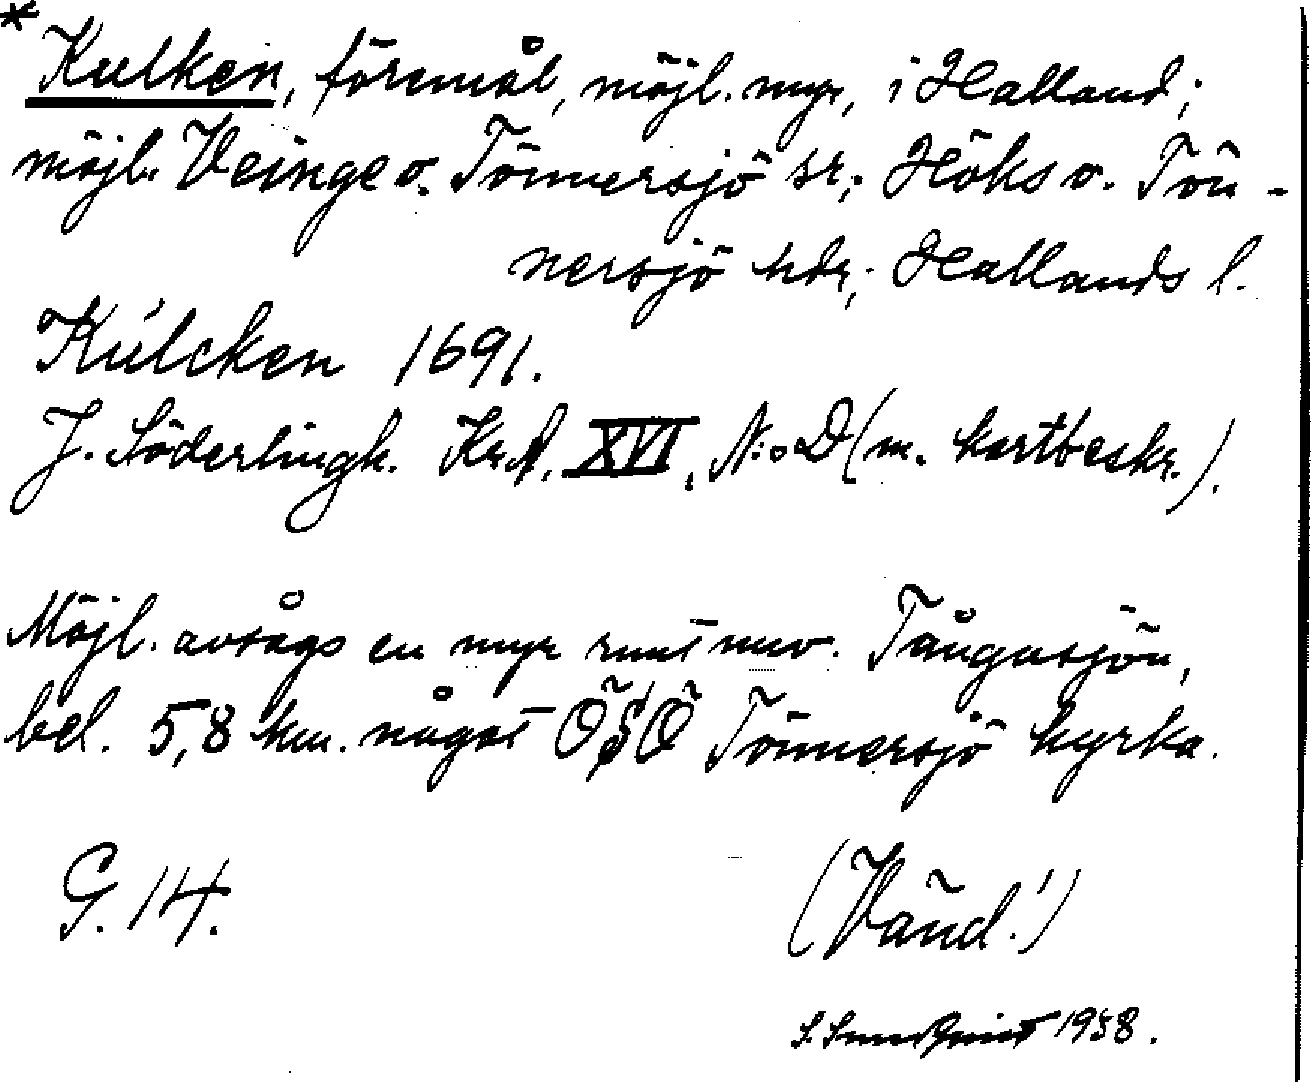 * Kulken, föremål, möjl. myr, i Halland;
möjl. Veinge o. Tönnersjö sr; Höks o. Tön-
nersjö hdr; Hallands l.
Kúlcken 1691.
J. Söderlingk. Kr.A. XVI, N:o D (m. kartbeskr.).
Möjl. avsågs en myr runt nuv. Tångasjön,
bel. 5,8 km. något ÖSÖ Tönnersjö kyrka.
G. 14.
(Vänd!)
S. Sundquist 1958.